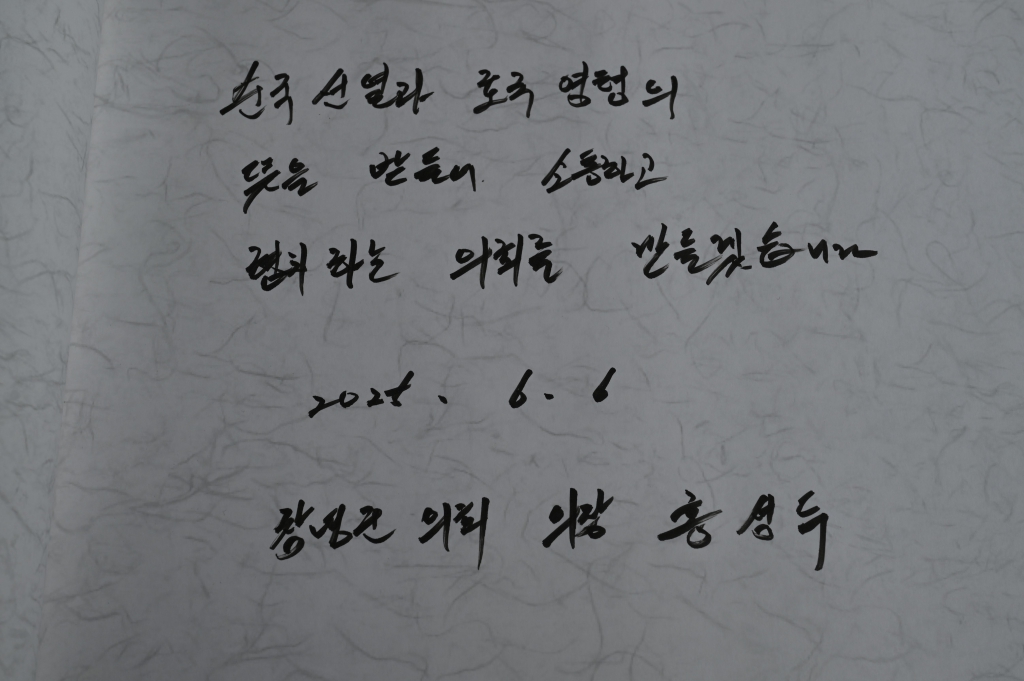 순국선열과 호국영령의
뜻을 받들어 소통하고
협치하는 의회를 만들겠습니다
2025. 6. 6
창녕군의회 의장 홍성두